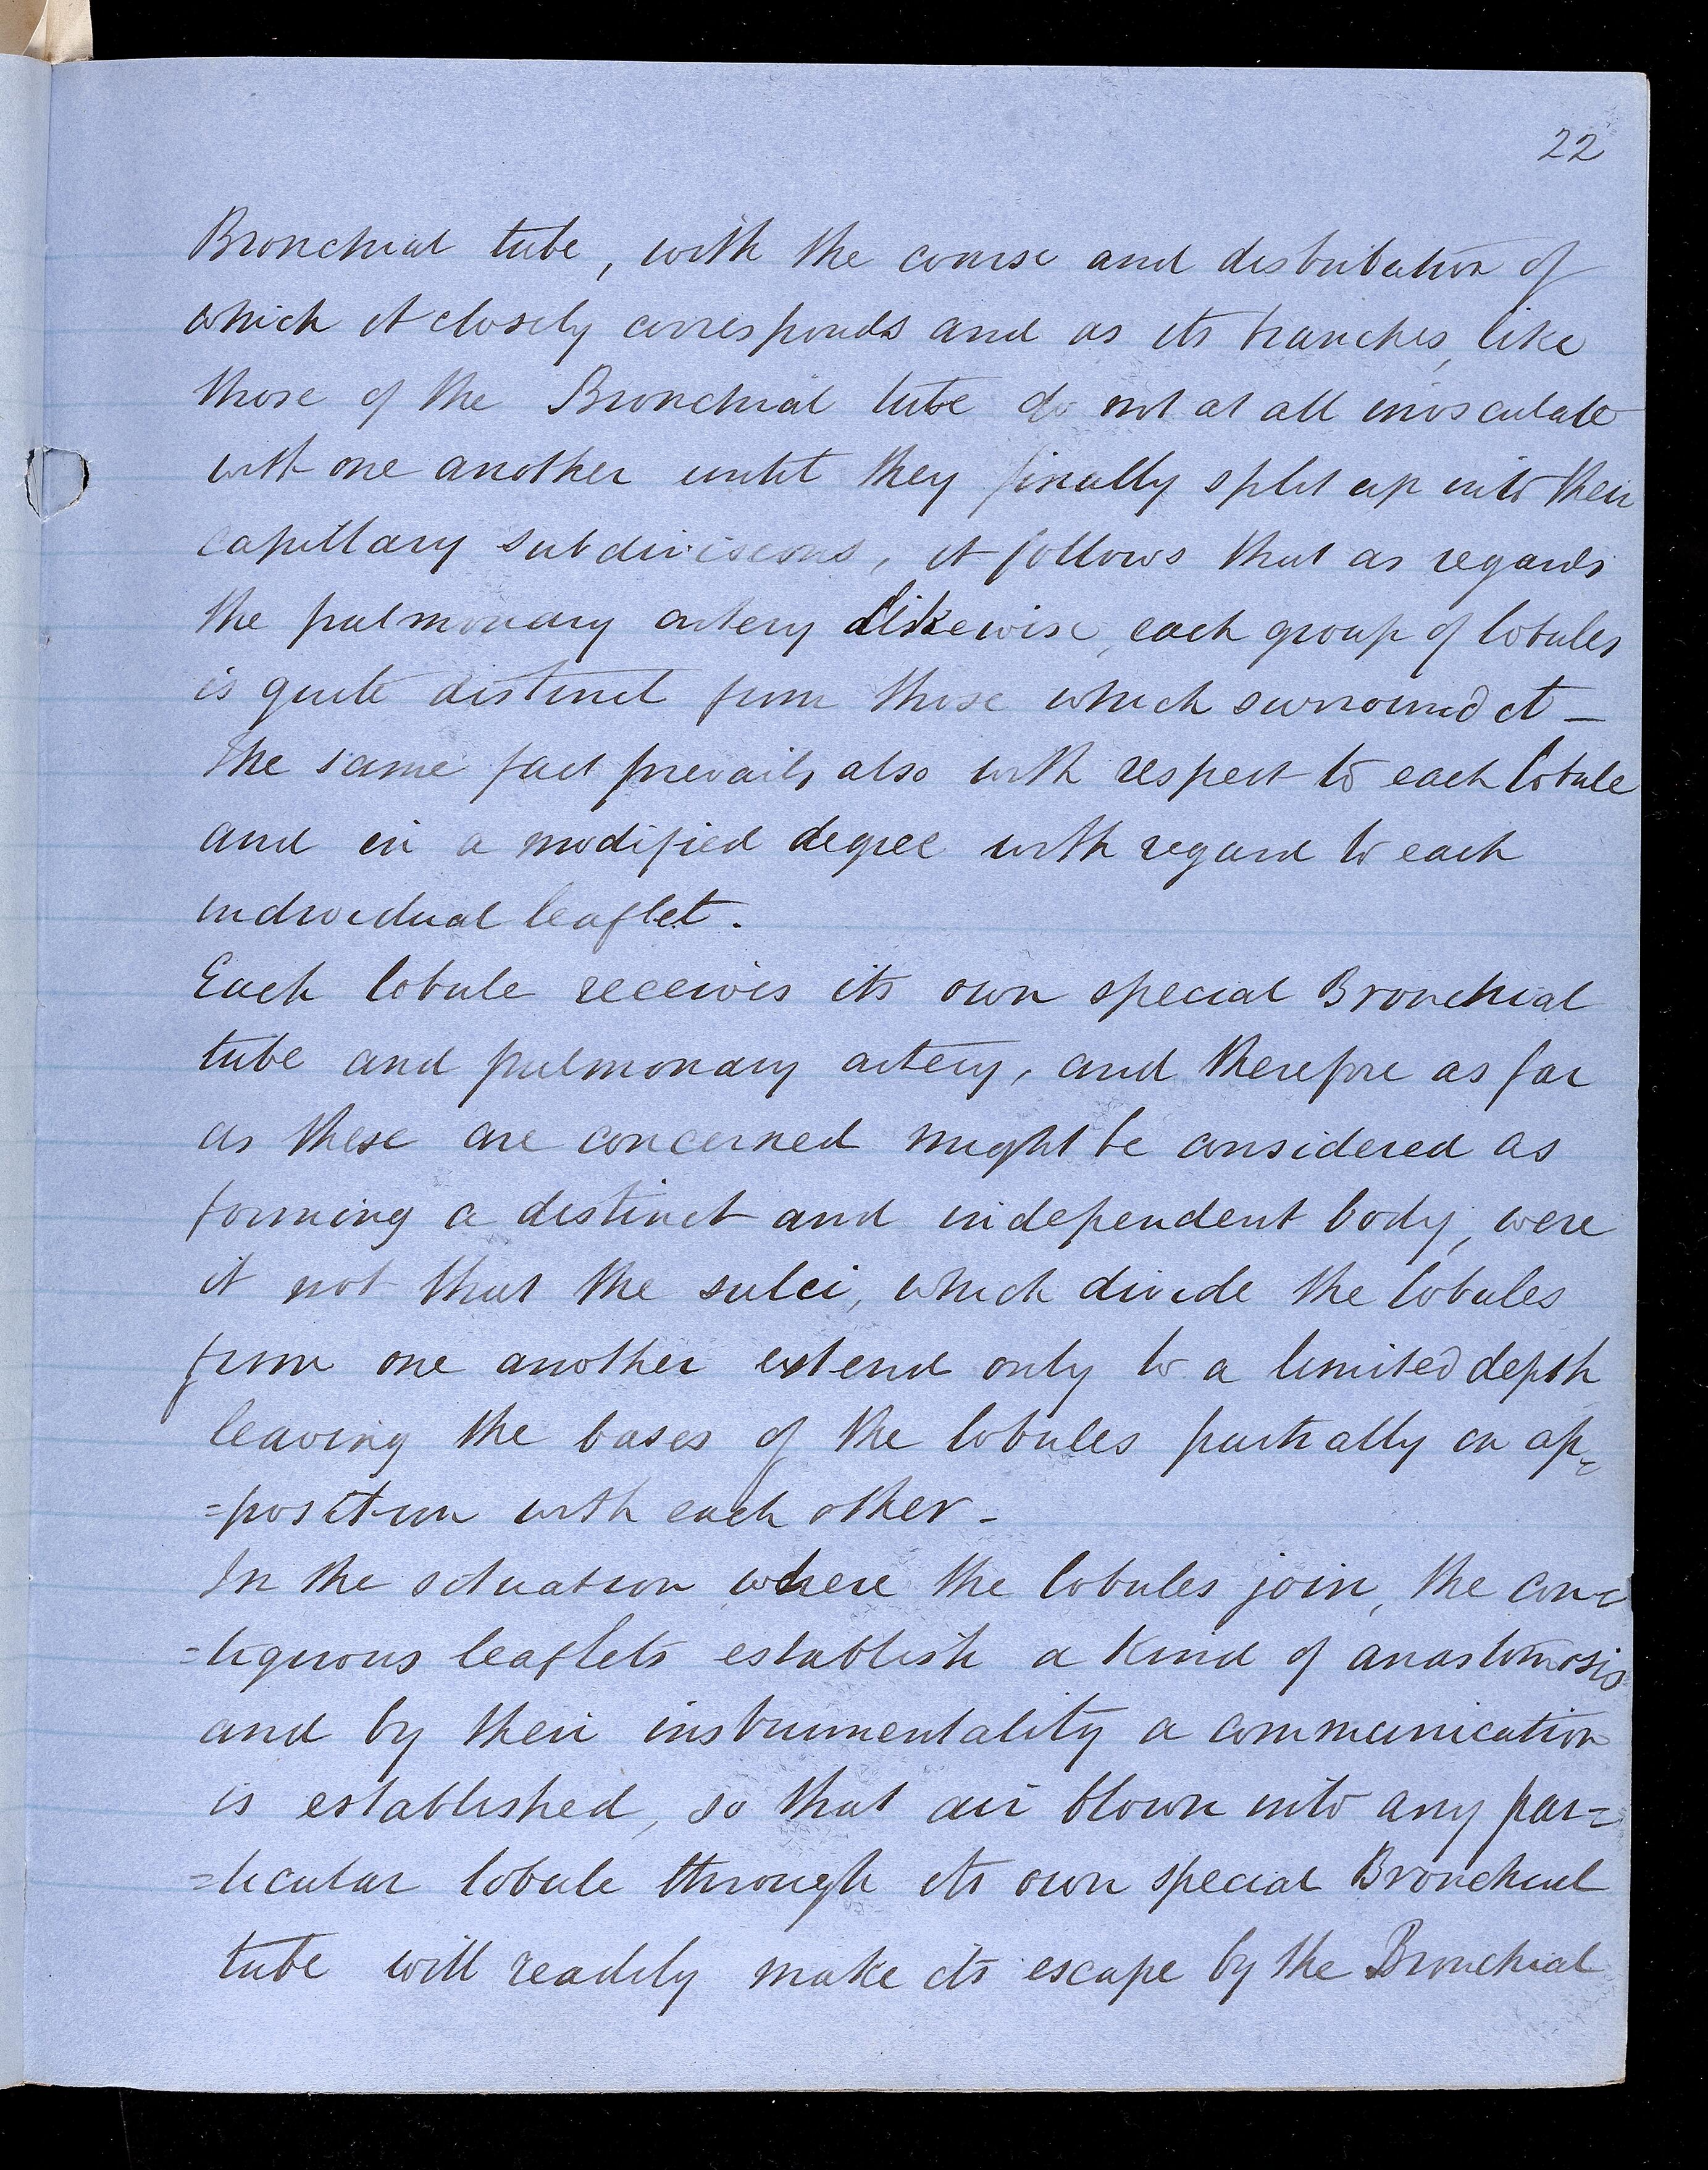 22
Bronchial tube, with the course and distribution of
which it closely corresponds and as its branches, like
those of the Bronchial tube do not at all inosculate
with one another until they finally split up into their
capillary subdivisions, it follows that as regards
the pulmonary artery likewise, each group of lobules
is quite distinct from those which surround it –
The same fact prevails, also with respect to each lobule
and in a modified degree with regard to each
individual leaflet.
Each lobule receives its own special Bronchial
tube and pulmonary artery, and therefore as far
as these are concerned might be considered as
forming a distinct and independent body, were
it not that the sulci, which divide the lobules
from one another extend only to a limited depth
leaving the bases of the lobules partially in ap=
=position with each other –
In the situation where the lobules join, the con=
=tiguous leaflets establish a kind of anastomosis
and by their instrumentality a communication
is established, so that air blown into any par=
=ticular lobule through its own special Bronchial
tube will readily make its escape by the Bronchial